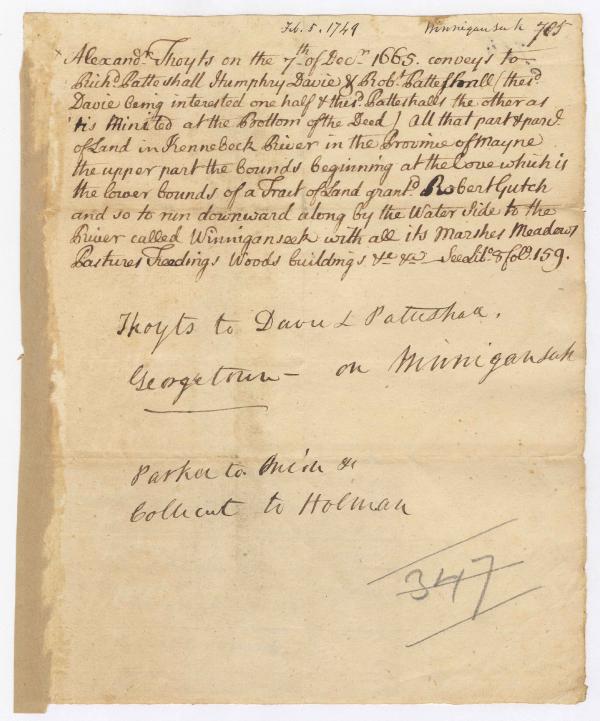 Feb. 5. 1749 Winnigansuk 785
Alexandr. Thoyts on the 7th of Decr. 1665. conveys to
Richd. Patteshall Humphry Davie & Robt. Patteshall (the sd.
Davie being interested one half & the sd. Patteshalls the other as
'tis Minited at the Bottom of the Deed) All that part & parcl.
of Land in Kennebeck River in the Province of Mayne
the upper part the bounds beginning at the Cove which is
the lower bounds of a Tract of Land grantd. Robert Gutch
and so to run downward along by the Water Side to the
River called Winniganseek with all its Marshes Meadows
Pastures Feedings Woods buildings &c &c See Libo. 8 folo. 159.
Thoyts to Davie & Patteshall.
Georgetown - on Winnigansuk
Parker to &c
Collicut to Holman
347